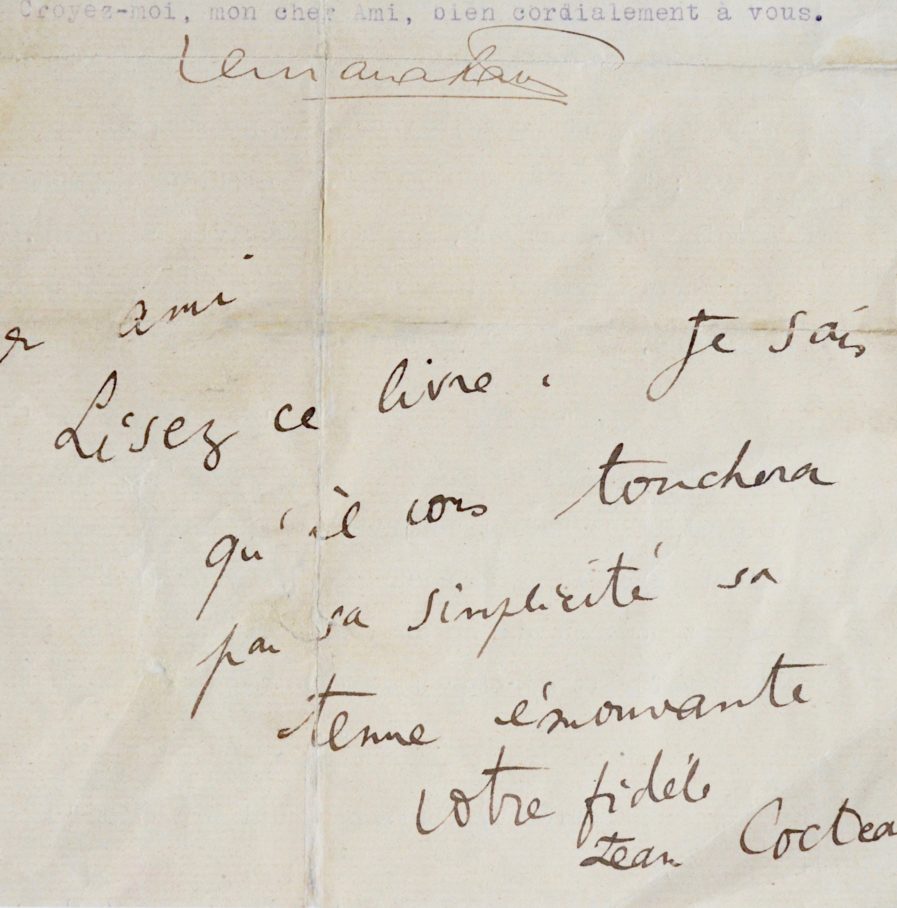 Croyez-moi, mon cher Ami, bien cordialement à vous.
ami
Lisez ce livre. Je sais
qu'il vous touchera
par sa simplicité sa
tenue émouvante
votre fidèle
Jean Cocteau